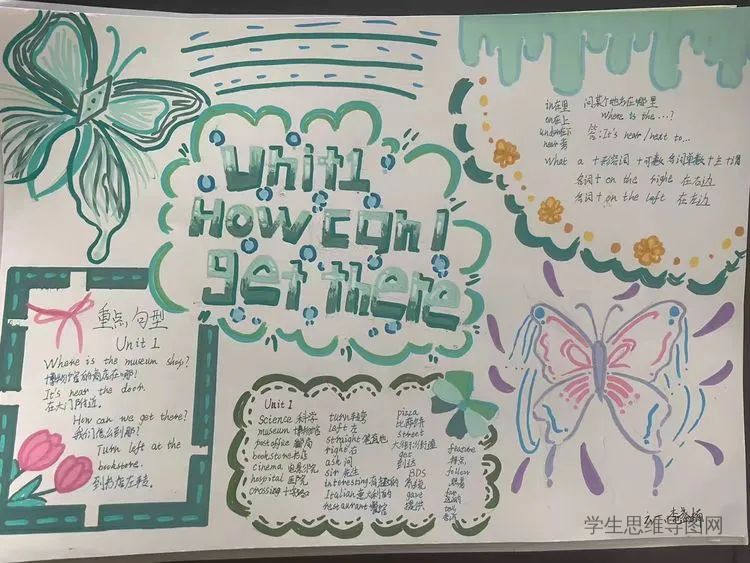 Unit1
How can I
get there
in在里
on在上
under在下
near 旁
问某个地方在哪里
Where is the ...?
答:It's near/next to...
What a +形容词+可数名词单数+主+谓
名词+on the right 在右边
名词+on the left 在左边
重点句型
Unit 1
Where is the museum shop?
博物馆的商店在哪?
It's near the door.
在大门附近。
How can we get there?
我们怎么到那?
Turn left at the
bookstore.
到书店左转。
Unit 1
Science 科学
museum 博物馆
post office 邮局
bookstore 书店
cinema 电影院
hospital 医院
crossing 十字路口
turn 转弯
left 左
straight 笔直地
right 右
ask 问
sir 先生
interesting 有趣的
Italian 意大利的
restaurant 餐馆
pizza
比萨饼
street
大街;街道
get
到达
GPS
系统
gave
提供
feature
特点
follow
跟着
far
远的
tell
告诉
学生思维导图网